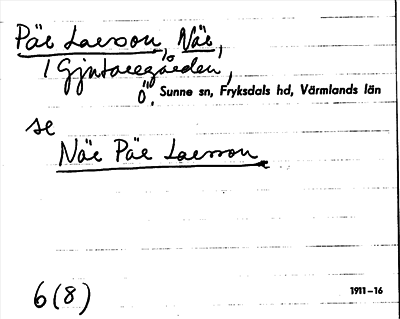 Pär Larsson, När,
i Gjutaregården,
Ö. Sunne sn, Fryksdals hd, Värmlands län
se
När Pär Larsson
6(8)
1911-16